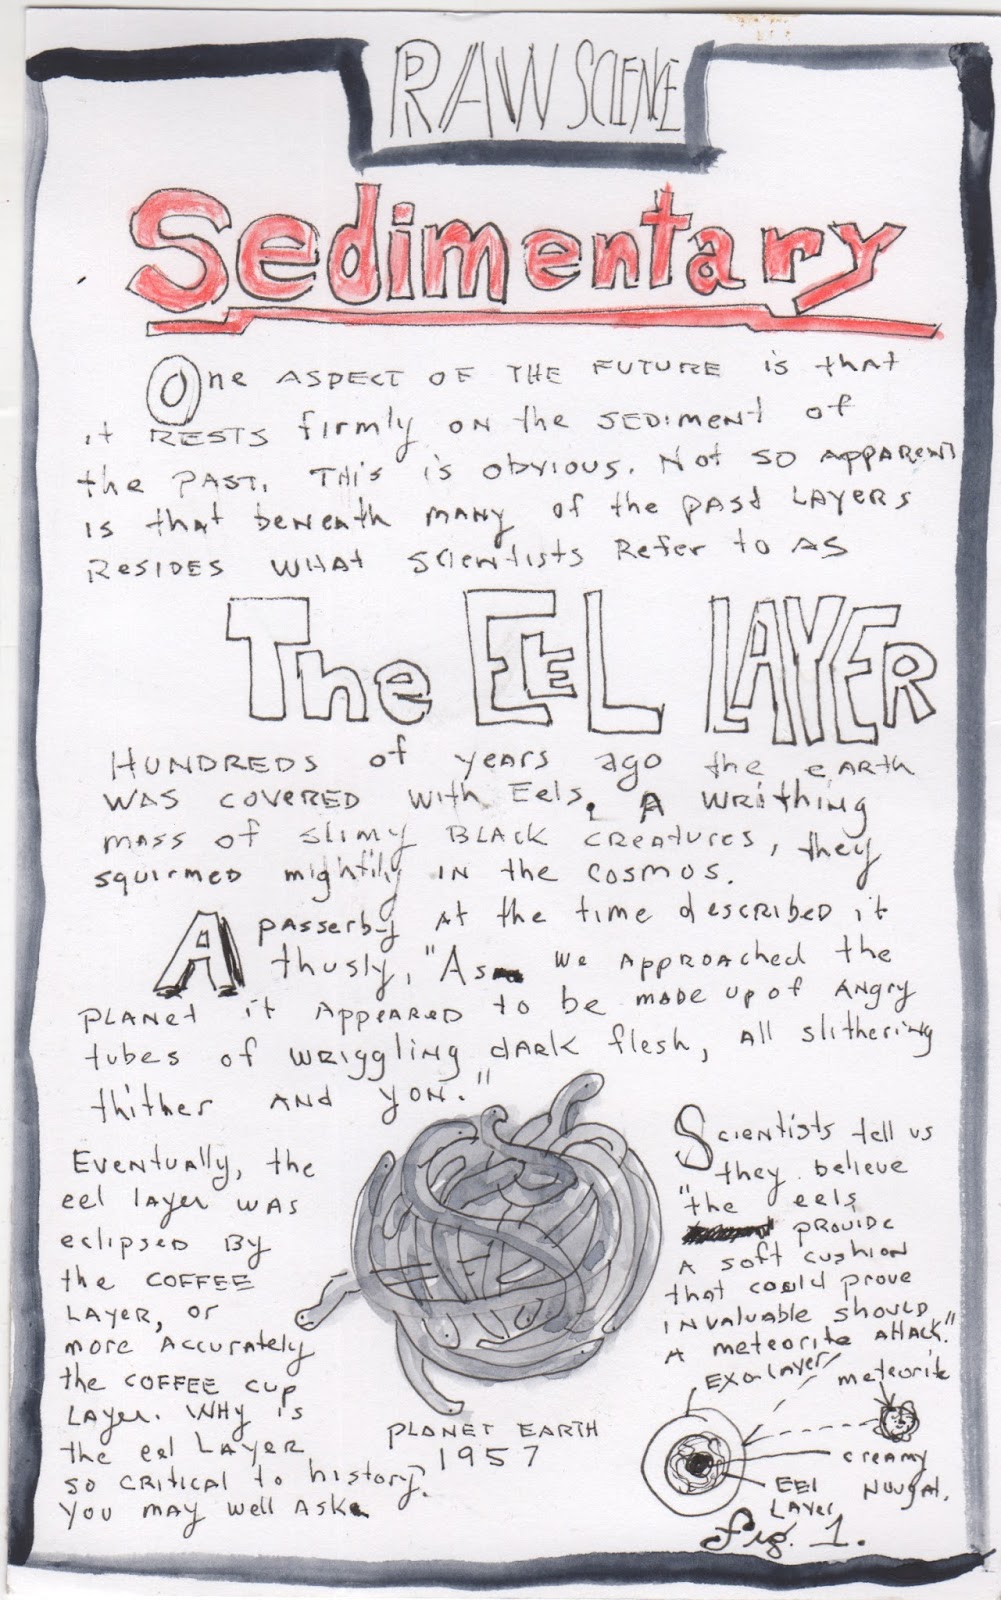 RAW SCIENCE
Sedimentary
One ASPECT OF THE FUTURE is that
it RESTS firmly ON the SEDIMENT of
the PAST. THIS is OBVIOUS. Not SO APPARENT
is that beneath MANY of the past LAYERS
RESIDES WHAT SCIENTISTS Refer to AS
The EEL LAYER
HUNDREDS of years ago the EARTH
WAS COVERED with Eels. A WRITHING
MASS OF SLIMY BLACK CREATURES, they
squirmed mightily IN the COSMOS.
A passerby AT the time described it
thusly, "As we APPROACHED the
PLANET it APPEARED to be MADE UP of ANGRY
tubes of WRIGGLING DARK flesh, All slithering
thither AND YON."
EVENTUALLY, the
eel layer WAS
eclipsed By
the COFFEE
LAYER, or
more Accurately
the COFFEE CUP
LAYER. WHY is
the eel LAYER
so CRITICAL to history.
You may well Ask.
PLANET EARTH
1957
Scientists tell us
they believe
"the eels
provide
A soft cushion
that could prove
INVALUABLE SHOULD
A METEORITE AttACK."
EXO-LAYER
meteorite
creamy
NOUGAT.
EEL
LAYER
Fig. 1.